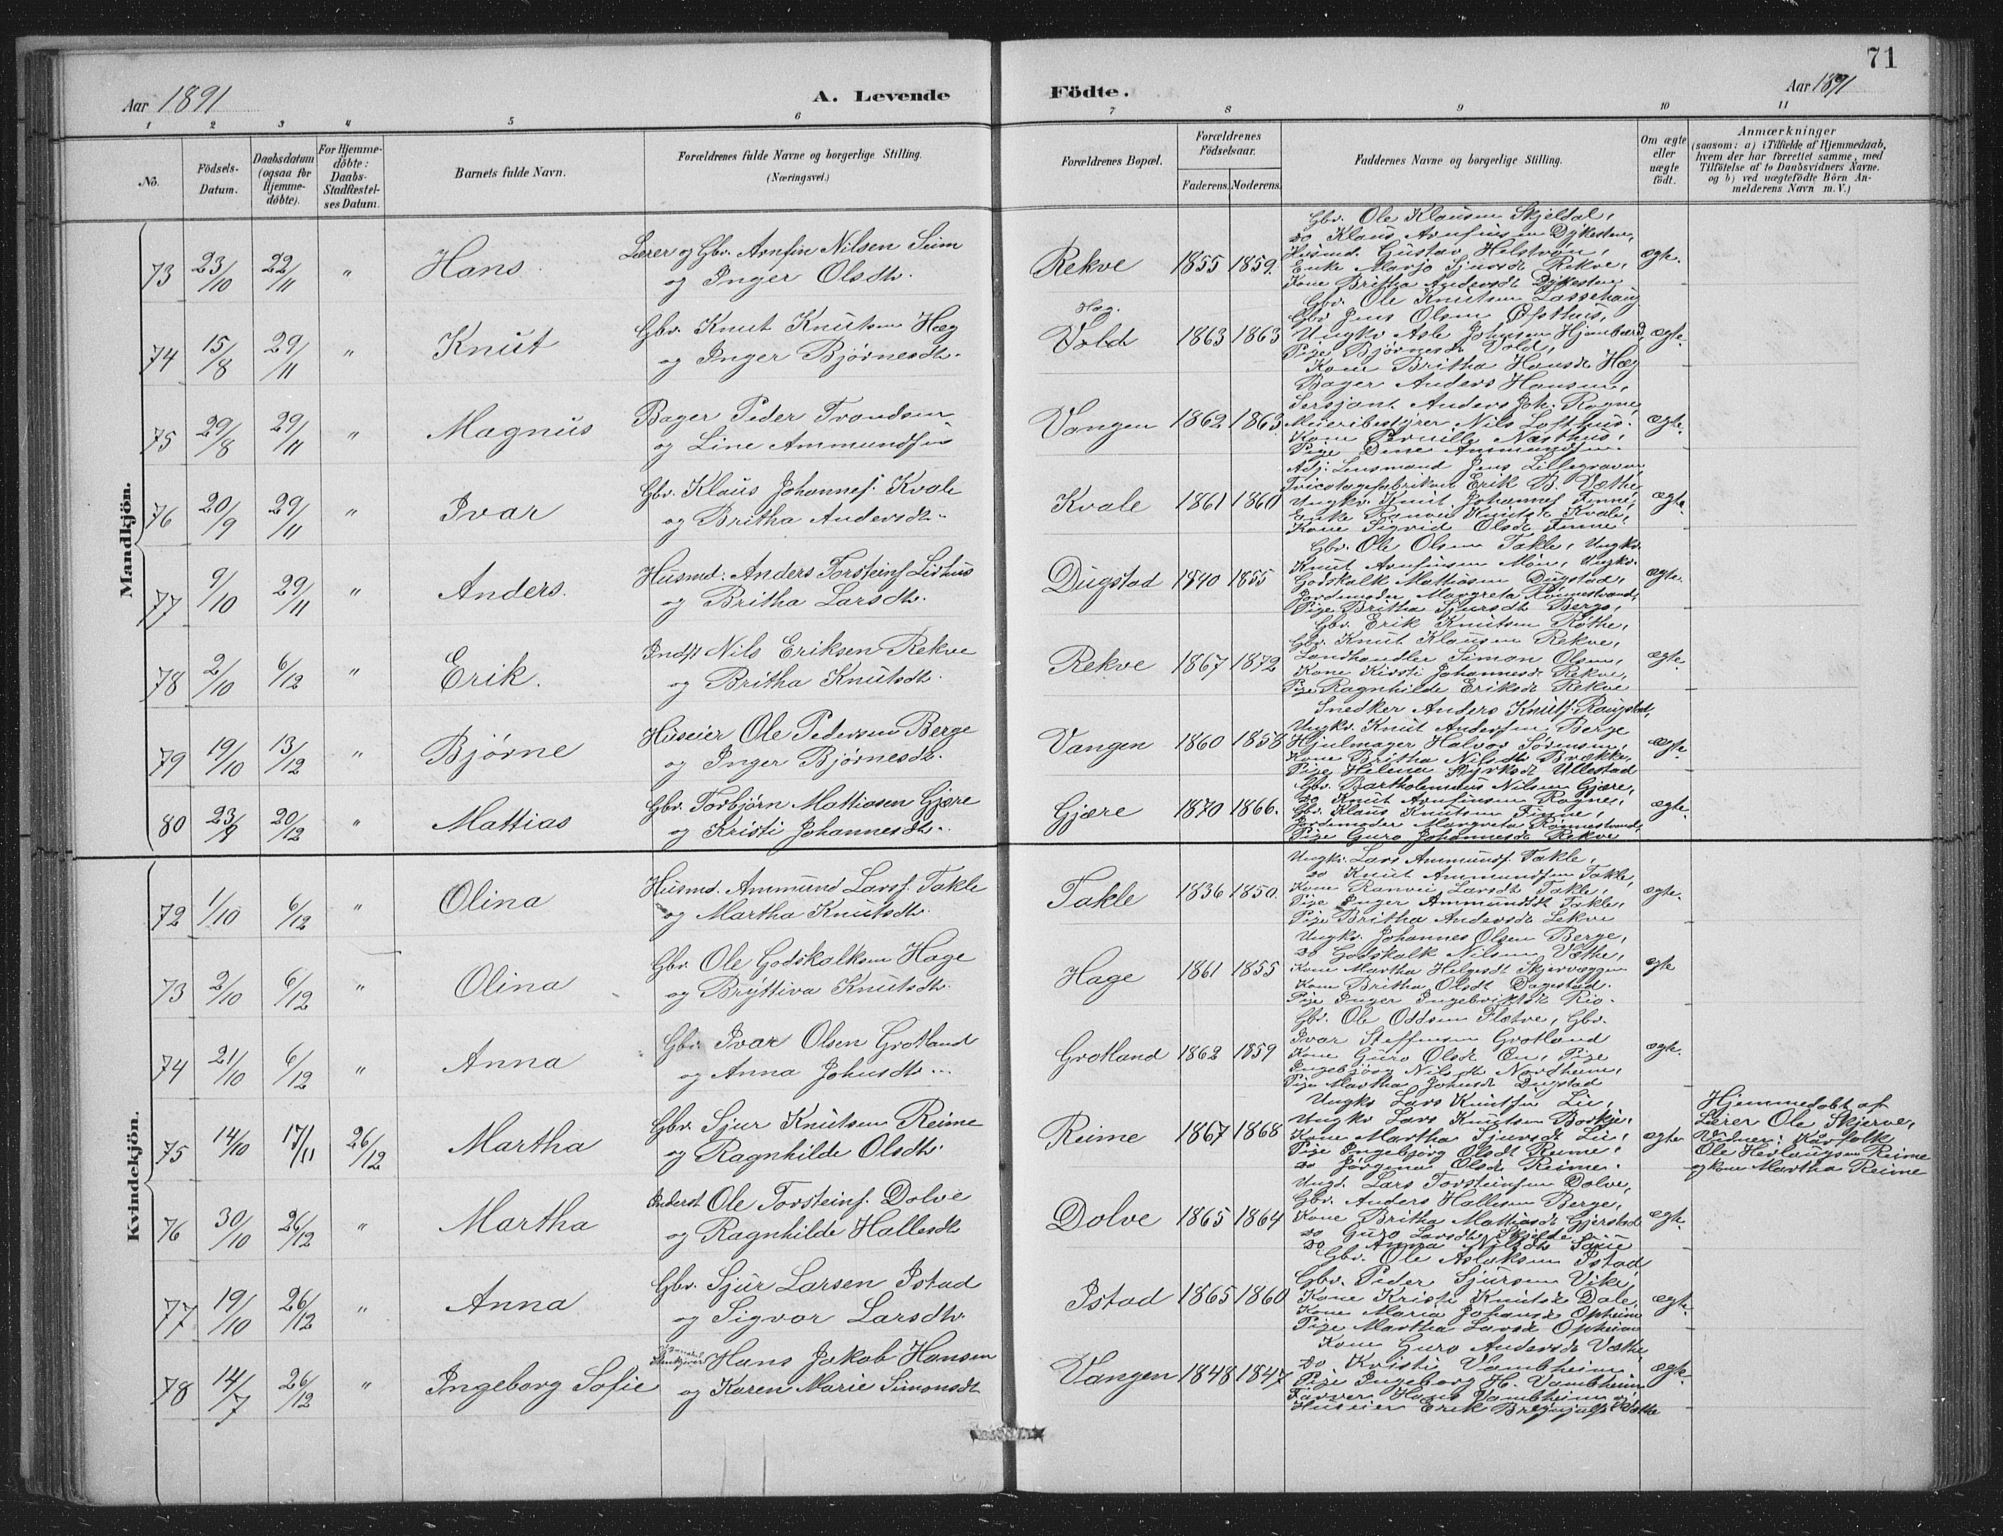 71
Aar 1891
A. Levende
Födte.
Aar 1891
1 2 3 4 5 6 7 8 9 10 11
No.
Födsels-Datum.
Daabsdatum (ogsaa for Hjemme-döbte).
For Hjemme-döbte: Daabs-Stadfæstel-ses Datum.
Barnets fulde Navn.
Forældrenes fulde Navne og borgerlige Stilling.
(Næringsvei.)
Forældrenes Bopæl.
Forældrenes Födselsaar.
Faderens. Moderens.
Faddernes Navne og borgerlige Stilling.
Om ægte eller uægte født.
Anmærkninger
(saasom: a) i Tilfælde af Hjemmedaab, hvem der har forrettet samme, med Tilföielse af to Daabsvidners Navne. og b) ved uægtefödte Börn An-melderens Navn m. V.)
Mandkjön.
73 23/10 22/11 " Hans. Lærer og Gbr. Arnfin Nilsen Seim
og Inger Olsdtr. Rekve 1855 1859. ægte.
Gbr. Ole Klausen Skjeldal,
do Klaus Arnfinsen Dykesten,
Husmd. Gustav Helstrøm,
Enke Marjo Sjursdt Rekve,
Kone Britha Andersdt Dykesten
74 15/8 29/11 " Knut Gbr. Knut Knutsen Hæg
og Inger Bjørnesdtr. Hæg. Vold 1863 1863 ægte.
Gbr. Ole Knutsen Lassehaug
Gbr Jens Olsen Østhus,
Ungkr Asle Johnsen Hjembard,
Pige Bjørnesdt Vold,
Kone Britha Hansdt Hæg
75 29/8 29/11 " Magnus Bager Peder Trondsen
og Line Ammundsen Vangen 1862 1863. ægte.
Bager Anders Hansen,
Sersjant Anders Joh. Rogne,
Meieribestyrer Nils Lofthus.
Kone Pernille Næsthus,
Pige Dine Ammundsen.
76 20/9 29/11 " Ivar Gbr. Klaus Johannes. Kvale
og Britha Andersdtr. Kvale 1861 1860 ægte.
Adj. Lensmand Jens Lillegraven
Tricotagefabrikør Erik B. Væthe,
Ungkr. Knut Johannes Finne,
Enke Ranvei Knutsdt Kvale,
Kone Sigrid Olsdt Finne
77 9/10 29/11 " Anders. Husmd. Anders Torsteins. Lidhus
og Britha Larsdtr. Dugstad 1840 1855 ægte.
Gbr. Ole Olsen Takle, Ungkr.
Knut Arnfinsen Møn, Ungkr.
Godskalk Mathiasen Dugstad,
Jordemoder Margreta Rønnestrand,
Pige Britha Sjursdt Berge,
78 2/10 6/12 " Erik. Indst Nils Eriksen Rekve
og Britha Knutsdtr. Rekve 1867 1872 ægte.
Gbr. Erik Knutsen Røthe,
Gbr Knut Klausen Rekve,
Landhandler Simon Olsen,
Kone Kirsti Johannesdt Rekve,
Pige Ragnhilde Eriksdt Rekve
79 19/10 13/12 " Bjørne Huseier Ole Pedersen Berge
og Inger Bjørnesdtr. Vangen 1860 1858 ægte.
Snedker Anders Knuts. Rongstad,
Ungkr. Knut Andersen Berge
Hjulmager Halvor Sørensen,
Kone Britha Nilsdt Brække,
Pige Helena Styrksdt Ullestad
80 23/9 20/12 " Mattias Gbr. Torbjørn Mattiasen Gjære
og Kristi Johannesdtr. Gjære 1870 1866. ægte.
Gbr. Bartholomeus Nilsen Gjære,
do Knut Arnfinsen Rogne,
Gbr. Klaus Knutsen Finne,
Jordemoder Margreta Rønnestrand,
Pige Guro Johannesdt Rekve
Kvindekjön.
72 1/10 6/12 " Olina Husmd. Ammund Lars. Takle
og Martha Knutsdtr. Takle 1836 1850. ægte.
Ungkr. Lars Ammunds. Takle,
do Knut Ammundsen Takle,
Kone Ranvei Larsdt Takle,
Pige Inger Ammundsdt Takle,
Pige Britha Andersdt Lekve
73 2/10 6/12 " Olina Gbr. Ole Godskalksen Hage
og Bryttiva Knutsdtr. Hage 1861 1855 ægte
Ungkr. Johannes Olsen Berge,
do Godskalk Nilsen Væthe,
Kone Martha Helgesdt Skjervæggen
Kone Britha Olsdt Dagestad.
Pige Inger Ingebriktsdt Rio.
74 21/10 6/12 " Anna Gbr. Ivar Olsen Grotland
og Anna Johnsdtr. Grotland 1862 1859 ægte.
Gbr. Ole Oddsen Flatve, Gbr.
Ivar Steffensen Grotland
Kone Guro Olsdt Øn, Pige
Ingebjørg Nilsdt Nordheim,
Pige Martha Johnsdt Dugstad
75 14/10 17/11 26/12 Martha Gbr. Sjur Knutsen Reime
og Ragnhilde Olsdtr. Reime 1867 1868 ægte
Ungkr Lars Knutsen Lie,
Ungkr Lars Knutsen Borkje,
Kone Martha Sjursdt Lie,
Pige Ingebjørg Olsdt Reime,
do Jørgina Olsdt Reime.
Hjemmedøbt af
Lærer Ole Skjerve,
Vidner: Kårfolk
Ole Herlaugsen Reime
og kone Martha Reime
76 30/10 26/12 " Martha Inderst Ole Torsteins. Dolve
og Ragnhilde Hallesdtr Dolve 1865 1864 ægte.
Ungk. Lars Torsteinsen Dolve,
Gbr. Anders Hallesen Berge,
Kone Britha Mattiasdt Gjerstad
do Guro Larsdt Skjelde
do Anna Nilsdt Saue
77 19/10 26/12 " Anna Gbr. Sjur Larsen Istad
og Sigvor Larsdtr. Istad 1865 1860 ægte.
Gbr. Ole Aslaksen Istad
Gbr. Peder Sjursen Vike,
Kone Kristi Knutsdt Dale,
Kone Maria Johansdt Opheim
Pige Martha Larsdt Opheim
78 14/7 26/12 " Ingeborg Sofie Hans Jakob Hansen
og Karen Marie Simonsdt Vangen 1848 1847 ægte.
Kone Guro Andersdt Væthe,
do Kristi Vambheim
Pige Ingeborg H. Vambheim
Farver Hans Vambheim og
Huseier Erik Brynjulfs. Væthe